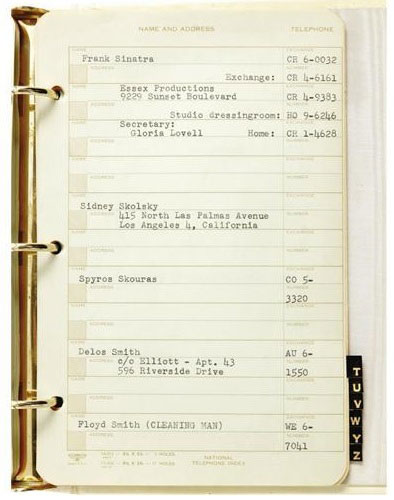 NAME AND ADDRESS TELEPHONE
NAME EXCHANGE
Frank Sinatra CR 6-0032
ADDRESS NUMBER
Exchange: CR 4-6161
Essex Productions
9229 Sunset Boulevard CR 4-9383
Studio dressingroom: HO 9-6246
Secretary:
Gloria Lovell Home: CR 1-4628
Sidney Skolsky
415 North Las Palmas Avenue
Los Angeles 4, California
Spyros Skouras CO 5-
ADDRESS NUMBER
3320
Delos Smith AU 6-
c/o Elliott - Apt. 43
596 Riverside Drive 1550
Floyd Smith (CLEANING MAN) WE 6-
ADDRESS NUMBER
7041
NATIONAL
TELEPHONE INDEX
T
U
V
W
Y
Z